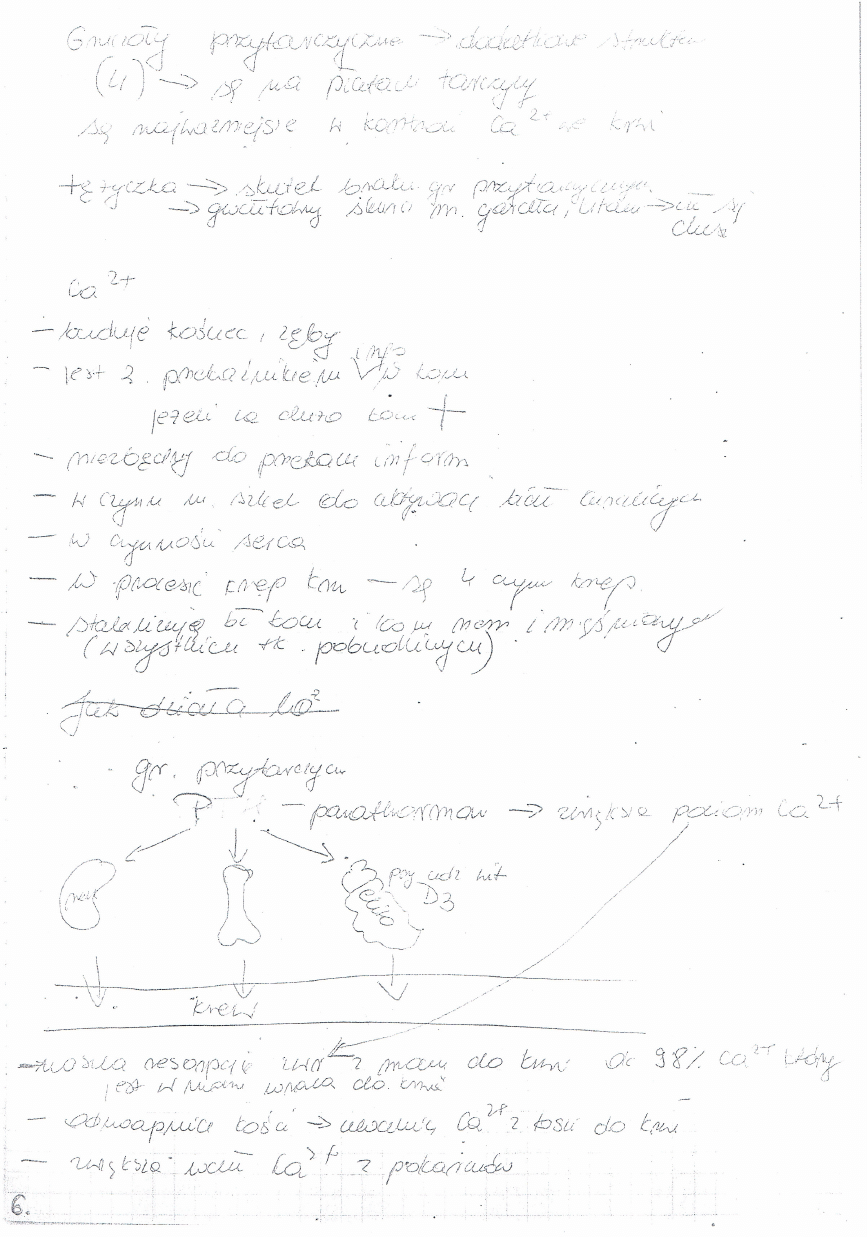 Gruczoły przytarczyczne → dodatkowe struktu
(4) → są na płatach tarczycy
są najważniejsze w kontroli Ca²⁺ we krwi
tężyczka → skutek braku gr przytarczycznych
→ gwałtowny skurcz m. gardła, krtani →
Ca²⁺
– buduje kościec, zęby
inf
– jest 2. przekaźnikiem V w kom
jeżeli Ca dużo kom +
– niezbędny do przekazu inform
– w czynn m. szkiel do
– w czynności serca
– w procesie krzep krw – są 4 czynn krzep
– stabilizuje bł kom i kom nerw i mięśniowych
(wszystkich tk. pobudliwych)
Jak działa Ca²
gr. przytarczycz
PTH – parathormon → zwiększa poziom Ca²⁺
przy udz wit
D3
nerk
jelito
krew
– resorpcję zwr z mocz do krwi ok 98% Ca²⁺ który
jest w moczu wraca do krwi
– odwapnia kości → uwalnia Ca²⁺ z kości do krwi
– zwiększa wchł Ca²⁺ z pokarmów
6.